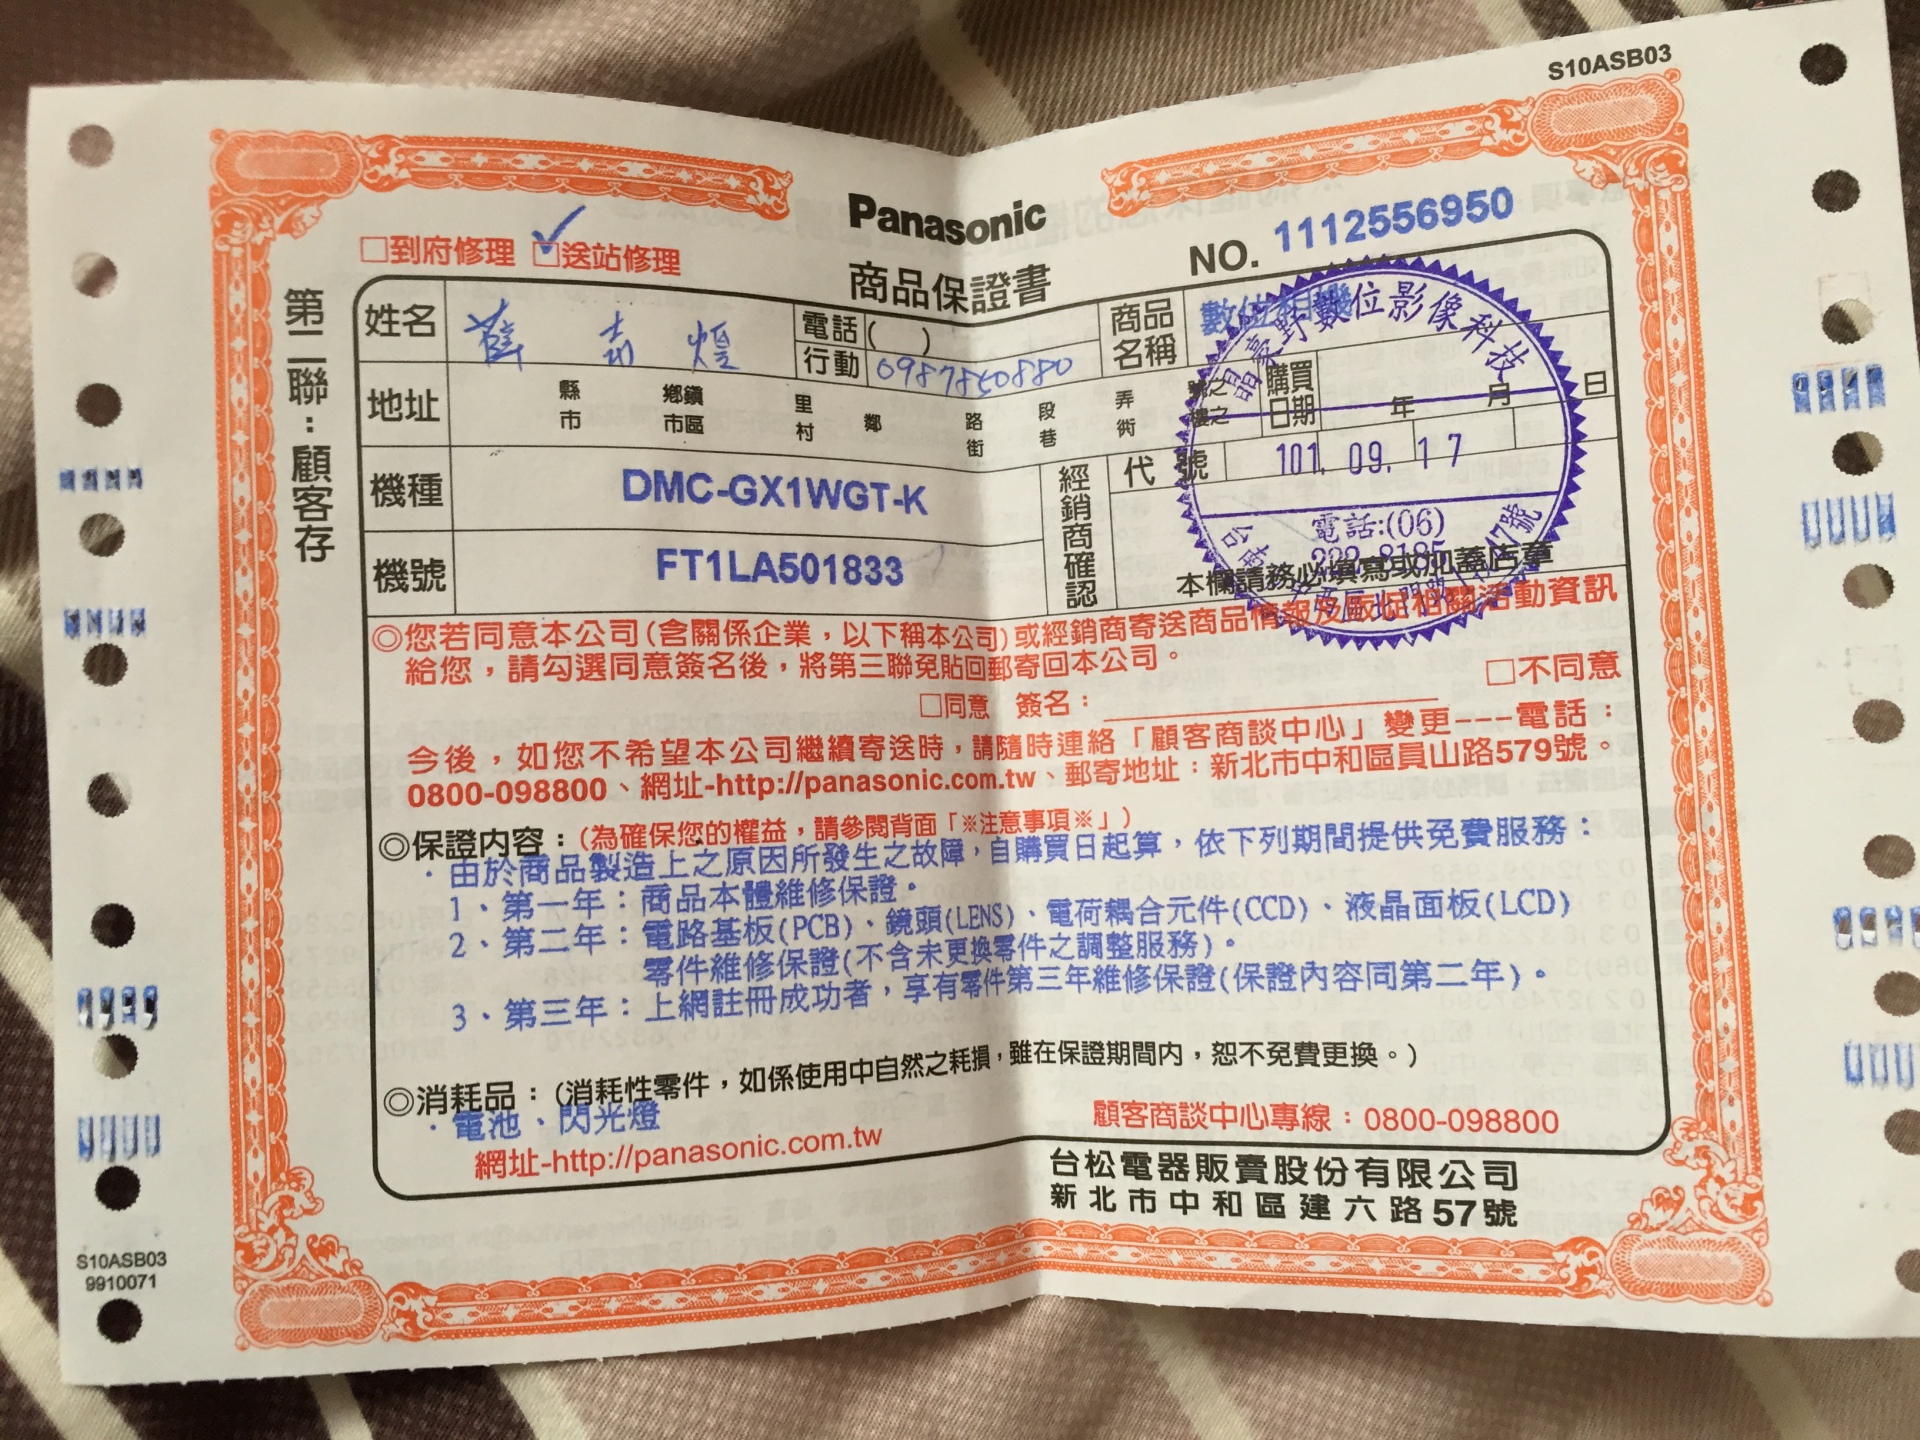 S10ASB03
Panasonic
商品保證書
NO. 1112556950
□到府修理 □送站修理
第二聯：顧客存
姓名
電話( )
行動 0987860880
商品名稱 數位相機
地址 縣市 鄉鎮市區 里村 鄰 路街 段巷 弄衖 號之 樓之
購買日期 年 月 日
機種 DMC-GX1WGT-K
機號 FT1LA501833
經銷商確認
代號
晶豪野數位影像科技
101. 09. 17
電話:(06)
本欄請務必填寫或加蓋店章
◎您若同意本公司(含關係企業，以下稱本公司)或經銷商寄送商品情報及販促相關活動資訊
給您，請勾選同意簽名後，將第三聯免貼回郵寄回本公司。
□同意 簽名： □不同意
今後，如您不希望本公司繼續寄送時，請隨時連絡「顧客商談中心」變更---電話：
0800-098800、網址-http://panasonic.com.tw、郵寄地址：新北市中和區員山路579號。
◎保證內容：(為確保您的權益，請參閱背面「※注意事項※」)
．由於商品製造上之原因所發生之故障，自購買日起算，依下列期間提供免費服務：
1、第一年：商品本體維修保證。
2、第二年：電路基板(PCB)、鏡頭(LENS)、電荷耦合元件(CCD)、液晶面板(LCD)
零件維修保證(不含未更換零件之調整服務)。
3、第三年：上網註冊成功者，享有零件第三年維修保證(保證內容同第二年)。
◎消耗品：(消耗性零件，如係使用中自然之耗損，雖在保證期間內，恕不免費更換。)
．電池、閃光燈
網址-http://panasonic.com.tw
顧客商談中心專線：0800-098800
台松電器販賣股份有限公司
新北市中和區建六路57號
S10ASB03
9910071